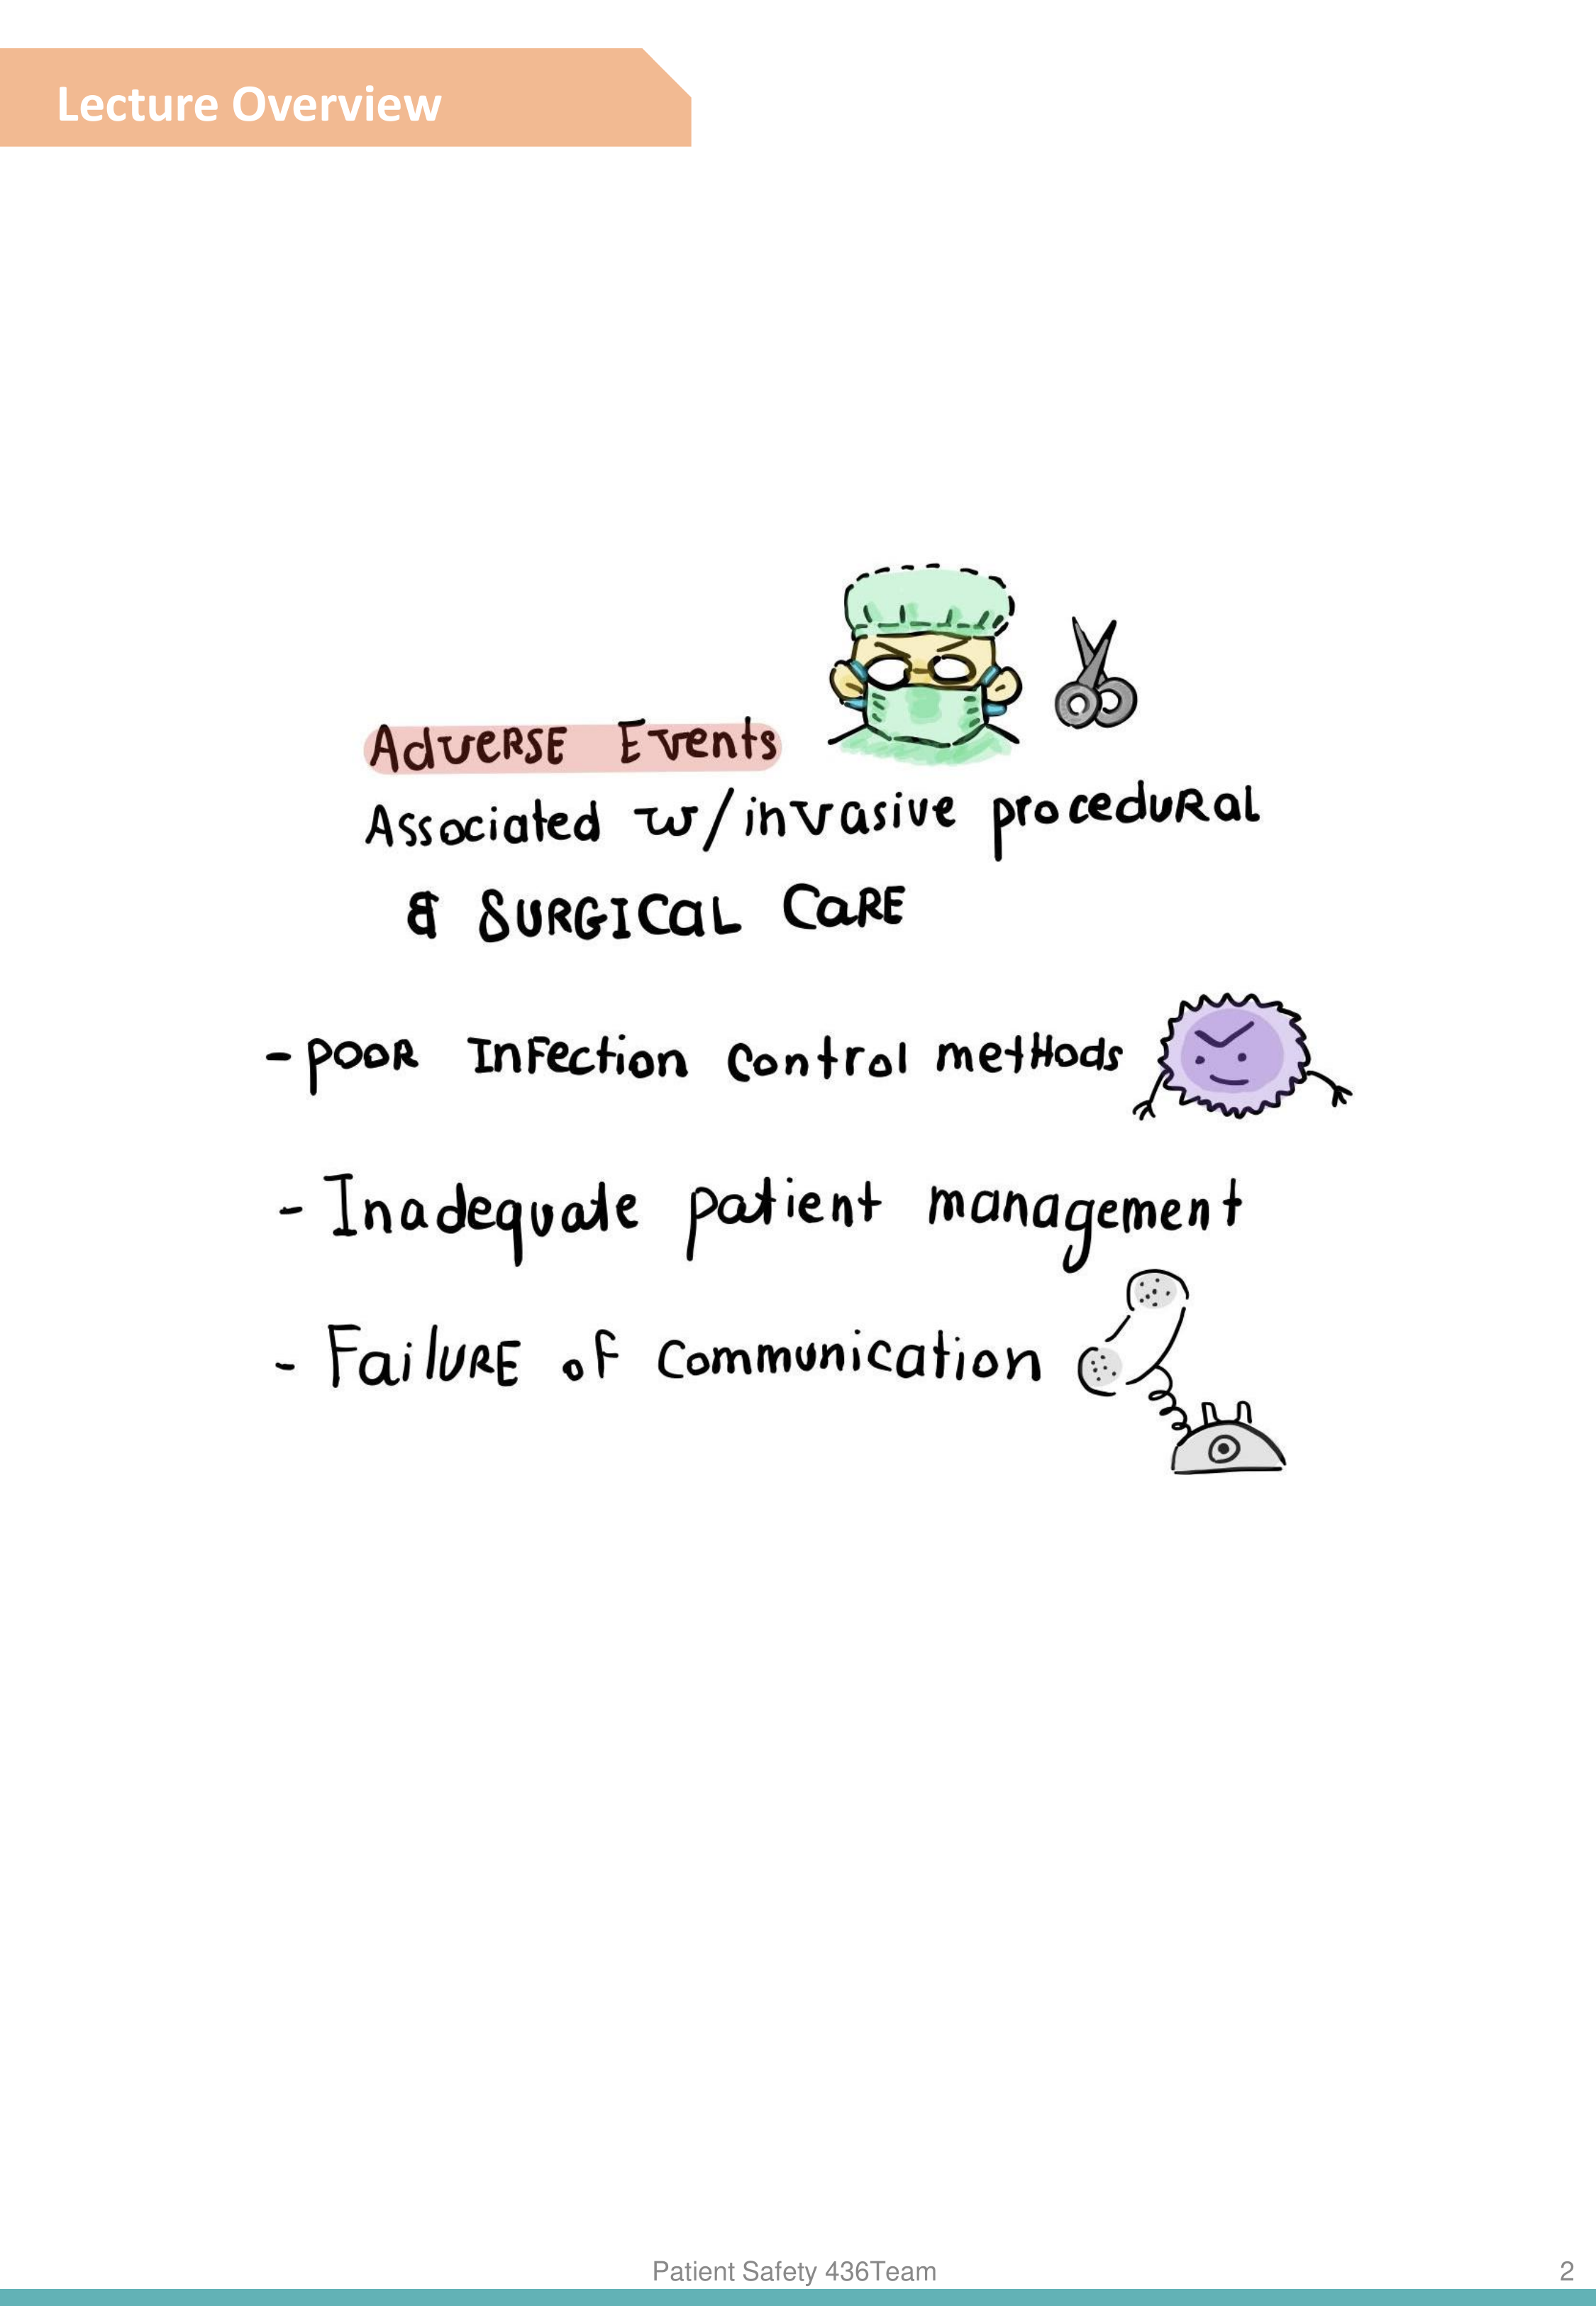 Lecture Overview
Adverse Events
Associated w/invasive procedural
& SURGICAL CARE
- POOR Infection control methods
- Inadequate patient management
- Failure of communication
Patient Safety 436Team
2